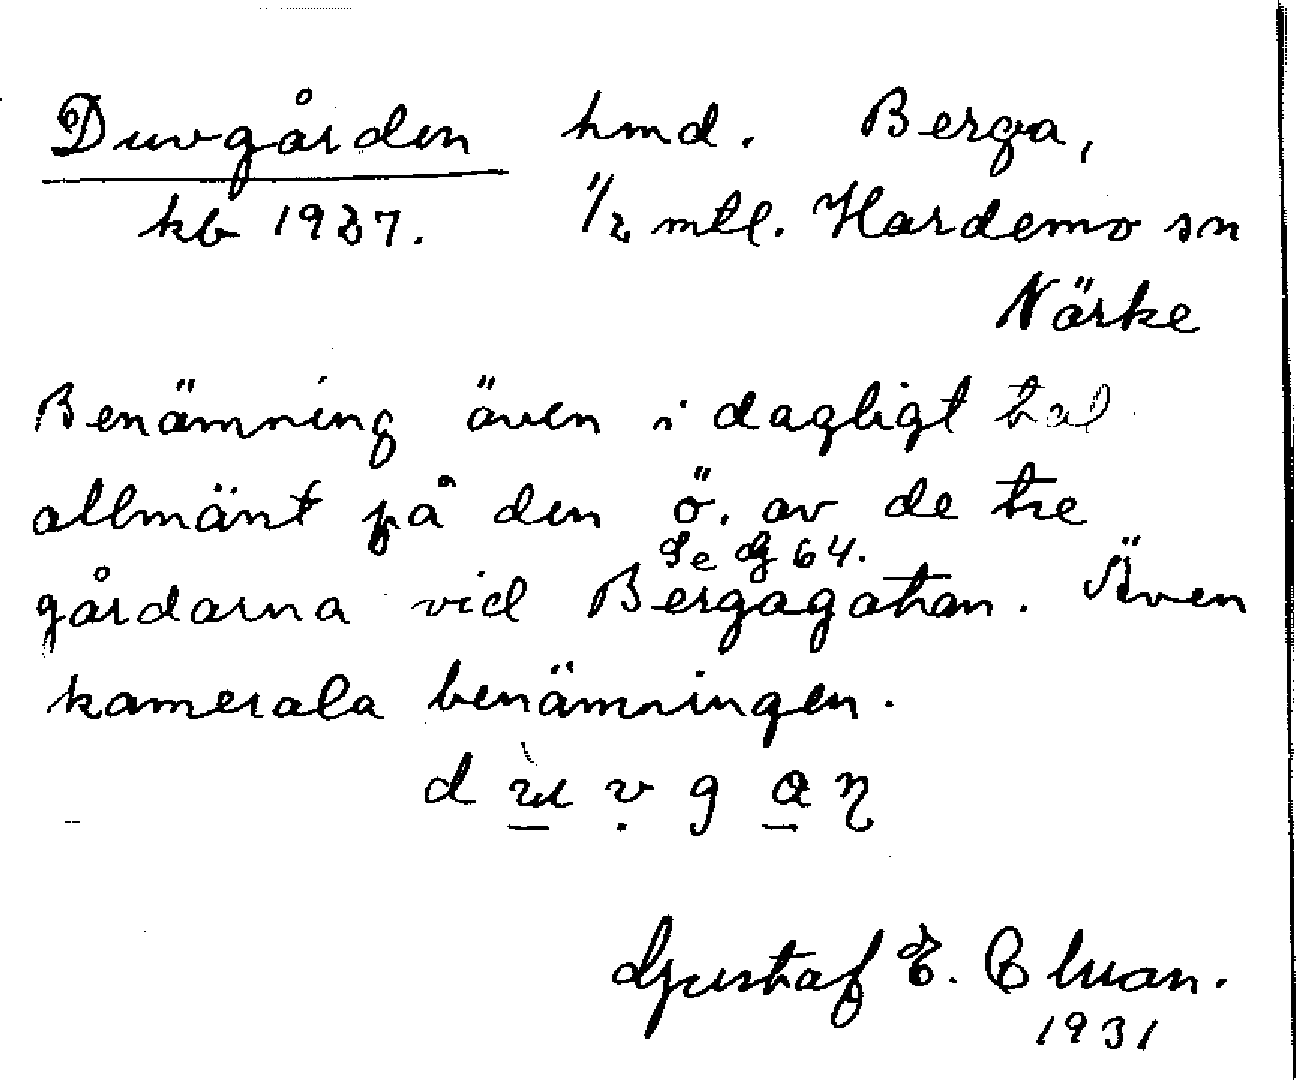 Duvgården hmd. Berga,
kb 1937. 1/2 mtl. Hardemo sn
Närke
Benämning även i dagligt tal
allmänt på den ö. av de tre
Se G 64.
gårdarna vid Bergagatan. Även
kamerala benämningen.
Gustaf E.
1931